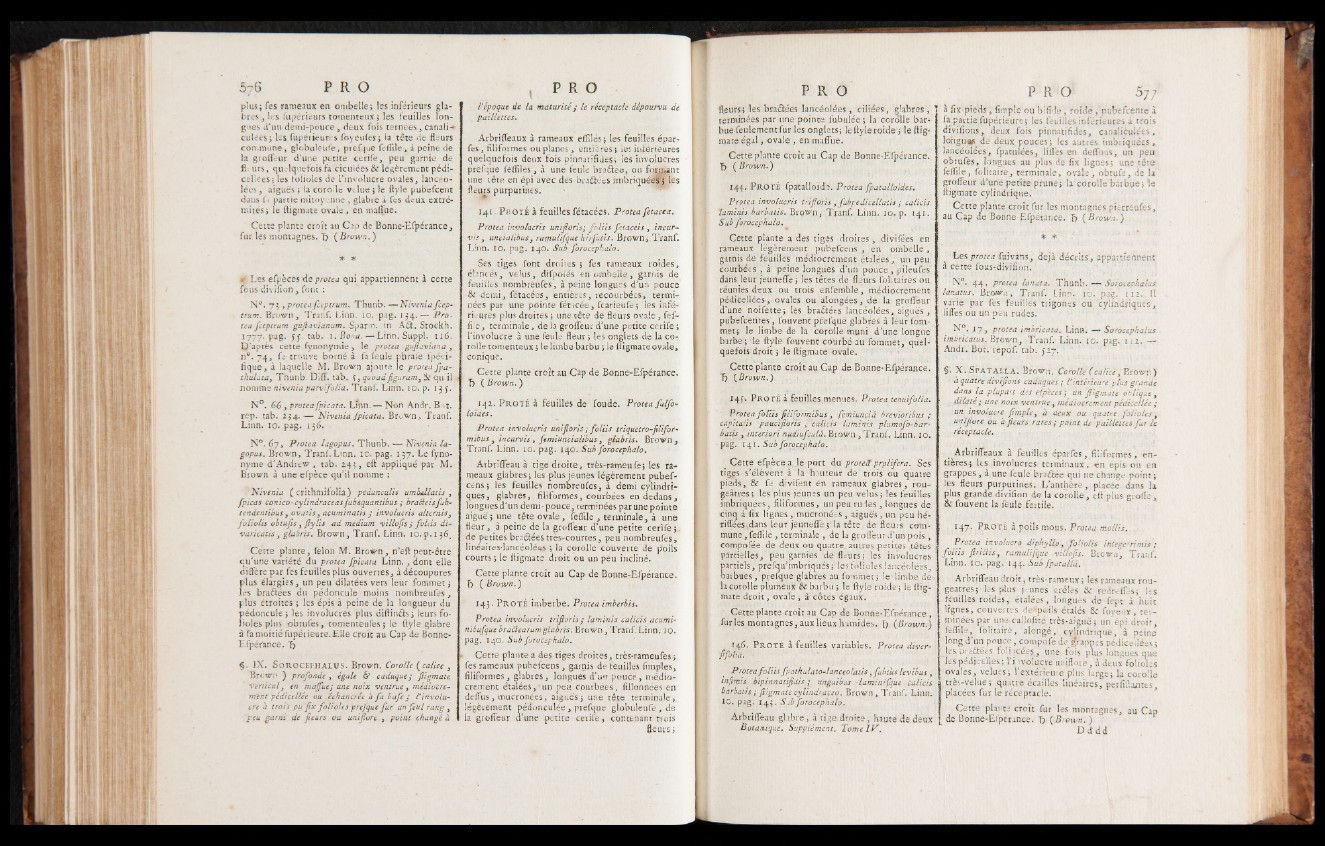 576 PRO
plus; ses rameaux en ombelle; les inférieurs gla-
bres, les supérieurs tomenteux; les feuilles lon-
gues d'un demi-pouce, deux fois ternées, canali-
culées; les supérieures soyeuses; la tête de fleurs
commune, globuleuse, presque sessile, à peine de
la grosseur d'une petite cerise, peu garnie de
fleurs, quelquefois fasciculées & légérement pédi-
cellées; les folioles de l'involucre ovales, lancéo-
lées, aiguës; la corolle velue; le style pubescent
dans sa partie mitoyenne, glabre à ses deux extré-
mités; le stigmate ovale, en massue.
Cette plante croît au Cap de Bonne-Espérance,
sur les montagnes. ♄ (Brown.)
* *
Les espèces de protea qui appartiennent à cette
sous-division, sont:
N°. 73, protea sceptrum. Thunb. — Nivenia scep-
trum. Brown, Trans. Linn. 10. pag. 134. — Pro-
tea sceptrum gustavianum. Sparm. in Act. Stockh.
1777. pag. 55. tab. 1. Bona. — Linn. Suppl. 116.
D'après cette synonymie, le protea gustaviana,
n°. 74, se trouve borné à sa seule phrase spéci-
fique, à laquelle M. Brown ajoute le protea spa-
thulata, Thunb Diss. tab. 5, quoad figuram, & qu'il
nomme nivenia parvifolia. Trans. Linn. 10. p. 135.
N°. 66, protea spicata. Linn. — Non Andr. Bot.
rep. tab. 234. — Nivenia spicata. Brown, Trans.
Linn. 10. pag. 136.
N°. 67, Protea lagopus. Thunb. — Nivenia la-
gopus. Brown, Trans. Linn. 10. pag. 137. Le syno-
nyme d'Andrew, tab. 243, est appliqué par M.
Brown à une espèce qu'il nomme:
Nivenia (crithmifolia) pedunculis umbellatis,
spicas conico-cylindraceas subæquantibus; bracteis sub-
tendentibus, ovatis, acuminatis; involucris alternis,
foliolis obtusis, stylis ad medium villosis; foliis di-
varicatis, glabris. Brown, Trans. Linn. 10. p. 136.
Cette plante, selon M. Brown, n'est peut-être
qu'une variété du protea spicata Linn., dont elle
diffère par ses feuilles plus ouvertes, à découpures
plus élargies, un peu dilatées vers leur sommet;
les bractées du pédoncule moins nombreuses,
plus étroites; les épis à peine de la longueur du
pédoncule; les involucres plus distincts; leurs fo-
lioles plus obtuses, tomenteuses; le style glabre
à sa moitié supérieure. Elle croît au Cap de Bonne-
Espérance. ♄
§. IX. SOROCEPHALUS. Brown. Corolle (calice,
Brown) profonde, égale & caduque; stigmate
vertical, en massue; une noix ventrue, médiocre-
ment pédicellée ou échancrée à sa base; l'involu-
cre à trois ou six folioles presque sur un seul rang,
peu garni de fleurs ou uniflore, point changé à
PRO
l'époque de la maturité; le réceptacle dépourvu de
paillettes.
Arbrisseaux à rameaux effilés; les feuilles épar-
ses, filiformes ou planes, entières; les inférieures
quelquefois deux fois pinnatifides; les involucres
presque sessiles, à une seule bractée, ou formant
une tête en épi avec des bractées imbriquées; les
fleurs purpurines.
141. PROTÉ à feuilles sétacées. Protea setacea.
Protea involucris unifloris; foliis setaceis, incur-
vis, uncialibus, ramulisque hirsutis. Brown, Trans.
Linn. 10. pag. 140. Sub sorocephalo.
Ses tiges sont droites; ses rameaux roides,
élancés, velus, disposés en ombelle, garnis de
feuilles nombreuses, à peine longues d'un pouce
& demi, sétacées, entières, recourbées, termi-
nées par une pointe sétacée, scarieuse; les infé-
rieures plus droites; une tête de fleurs ovale, ses-
sile, terminale, de la grosseur d'une petite cerise;
l'involucre à une seule fleur; les onglets de la co-
rolle tomenteux; le limbe barbu; le stigmate ovale,
conique.
Cette plante croît au Cap de Bonne-Espérance.
♄ (Brown.)
142. PROTÉ à feuilles de soude. Protea salso-
loides.
Protea involucris unifloris; foliis triquetro-filifor-
mibus, incurvis, semiuncialibus, glabris. Brown,
Trans. Linn. 10. pag. 140. Sub sorocephalo.
Arbrisseau à tige droite, très-rameuse; les ra-
meaux glabres; les plus jeunes légérement pubes-
cens; les feuilles nombreuses, à demi cylindri-
ques, glabres, filiformes, courbées en dedans,
longues d'un demi-pouce, terminées par une pointe
aiguë; une tête ovale, sessile, terminale, à une
fleur, à peine de la grosseur d'une petite cerise;
de petites bractées très-courtes, peu nombreuses,
linéaires-lancéolées; la corolle couverte de poils
courts; le stigmate droit ou un peu incliné.
Cette plante croît au Cap de Bonne-Espérance.
♄ (Brown.)
143. PROTÉ imberbe. Protea imberbis.
Protea involucris trifloris; laminis calicis acumi-
nibusque bractearum glabris. Brown, Trans. Linn. 10.
pag. 140. Sub sorocephalo.
Cette plante a des tiges droites, très-rameuses;
ses rameaux pubescens, garnis de feuilles simples,
filiformes, glabres, longues d'un pouce, médio-
crement étalées, un peu courbées, sillonnées en
dessus, mucronées, aiguës; une tête terminale,
légérement pédonculée, presque globuleuse, de
la grosseur d'une petite cerise, contenant trois
fleurs;
PRO
fleurs; les bractées lancéolées, ciliées, glabres,
terminées par une pointe subulée; la corolle bar-
bue seulement sur les onglets; le style roide; le stig-
mate égal, ovale, en massue.
Cette plante croît au Cap de Bonne-Espérance.
♄ (Brown.)
144. PROTÉ spatalloïde. Protea spatalloides.
Protea involucris trifloris, subpedicellatis; calicis
laminis barbatis. Brown, Trans. Linn. 10. p. 141.
Sub sorocephalo.
Cette plante a des tiges droites, divisées en
rameaux légérement pubescens, en ombelle,
garnis de feuilles médiocrement étalées, un peu
courbées, à peine longues d'un pouce, pileuses
dans leur jeunesse; les têtes de fleurs solitaires ou
réunies deux ou trois ensemble, médiocrement
pédicellées, ovales ou alongées, de la grosseur
d'une noisette; les bractées lancéolées, aiguës,
pubescentes, souvent presque glabres à leur som-
met; le limbe de la corolle muni d'une longue
barbe; le style souvent courbé au sommet, quel-
quefois droit; le stigmate ovale.
Cette plante croît au Cap de Bonne-Espérance.
♄ (Brown.)
145. PROTÉ à feuilles menues. Protea tenuifolia.
Protea foliis filiformibus, semiunciâ brevioribus;
capitulis paucifloris, calicis laminis plumoso-bar-
batis, interiori nudiusculâ. Brown, Trans. Linn. 10.
pag. 141. Sub sorocephalo.
Cette espèce a le port du protea prolifera. Ses
tiges s'élèvent à la hauteur de trois ou quatre
pieds, & se divisent en rameaux glabres, rou-
geâtres; les plus jeunes un peu velus; les feuilles
imbriquées, filiformes, un peu rudes, longues de
cinq à six lignes, mucronées, aiguës, un peu hé-
rissées dans leur jeunesse; la tête de fleurs com-
mune, sessile, terminale, de la grosseur d'un pois,
composée de deux ou quatre autres petites têtes
partielles, peu garnies de fleurs; les involucres
partiels, presqu'imbriqués; les folioles lancéolées,
barbues, presque glabres au sommet; le limbe de
la corolle plumeux & barbu; le style roide; le stig-
mate droit, ovale, à côtés égaux.
Cette plante croît au Cap de Bonne-Espérance,
sur les montagnes, aux lieux humides. ♄ (Brown.)
146. PROTÉ à feuilles variables. Protea diver-
sifolia.
Protea foliis spathulato-lanceolatis, subtus levibus,
infimis bipinnatifidis; unguibus laminisque calicis
barbatis, stigmate cylindraceo. Brown, Trans. Linn.
10. pag. 143. Sub sorocephalo.
Arbrisseau glabre, à tige droite, haute de deux
Botanique. Supplément. Tome IV.
PRO 577
à six pieds, simple ou bifide, roide, pubescente à
sa partie supérieure; les feuilles inférieures à trois
divisions, deux fois pinnatifides, canaliculées,
longues de deux pouces; les autres imbriquées,
lancéolées, spatulées, lisses en dessous, un peu
obtuses, longues au plus de six lignes; une tête
sessile, solitaire, terminale, ovale, obtuse, de la
grosseur d'une petite prune; la corolle barbue; le
stigmate cylindrique.
Cette plante croît sur les montagnes pierreuses,
au Cap de Bonne Espérance. ♄ (Brown.)
* *
Les protea suivans, déjà décrits, appartiennent
à cette sous-division.
N°. 44, protea lanata. Thunb. — Sorocephalus
lanatus. Brown, Trans. Linn. 10. pag. 112. Il
varie par ses feuilles trigones ou cylindriques,
lisses ou un peu rudes.
N°. 17, protea imbricata. Linn. — Sorocephalus
imbricatus. Brown, Tranf. Linn. 10. pag. 112. —
Andr. Bot. repos. tab. 527.
§. X. SPATALLA. Brown. Corolle (calice, Brown)
à quatre divisions caduques; l'intérieure plus grande
dans la plupart des espèces; un stigmate oblique,
dilaté; une noix ventrue, médiocrement pédicellée;
un involucre simple, à deux ou quatre folioles,
uniflore ou à fleurs rares; point de paillettes sur le
réceptacle.
Arbrisseaux à feuilles éparses, filiformes, en-
tières; les involucres terminaux, en épis ou en
grappes, à une seule bractée qui ne change point;
les fleurs purpurines. L'anthère, placée dans la
plus grande division de la corolle, est plus grosse,
& souvent la seule fertile.
147. PROTÉ à poils mous. Protea mollis.
Protea involucro diphyllo, foliolis integerrimis;
foliis strictis, ramulisque villosis. Brown, Trans.
Linn. 10. pag. 144. Sub spatallâ.
Arbrisseau droit, très-rameux; les rameaux rou-
geâtres; les plus jeunes grêles & redressés; les
feuilles roides, étalées, longues de sept à huit
lignes, couvertes de poils étalés & soyeux, ter-
minées par une callosité très-aiguë; un épi droit,
sessile, solitaire, alongé, cylindrique, à peine
long d'un pouce, composé de grappes pédicellées;
les bractées foliacées, une fois plus longues que
les pédicelles; l'involucre uniflore, à deux folioles
ovales, velues; l'extérieure plus large; la corolle
très-velue; quatre écailles linéaires, persistantes,
placées sur le réceptacle.
Cette plante croît sur les montagnes, au Cap
de Bonne-Espérance. ♄ (Brown.)
Dddd